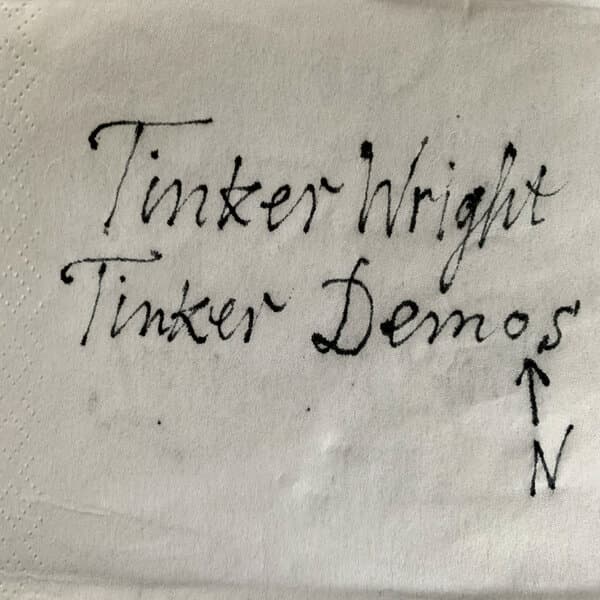 Tinker Wright
Tinker Demos
↑
N